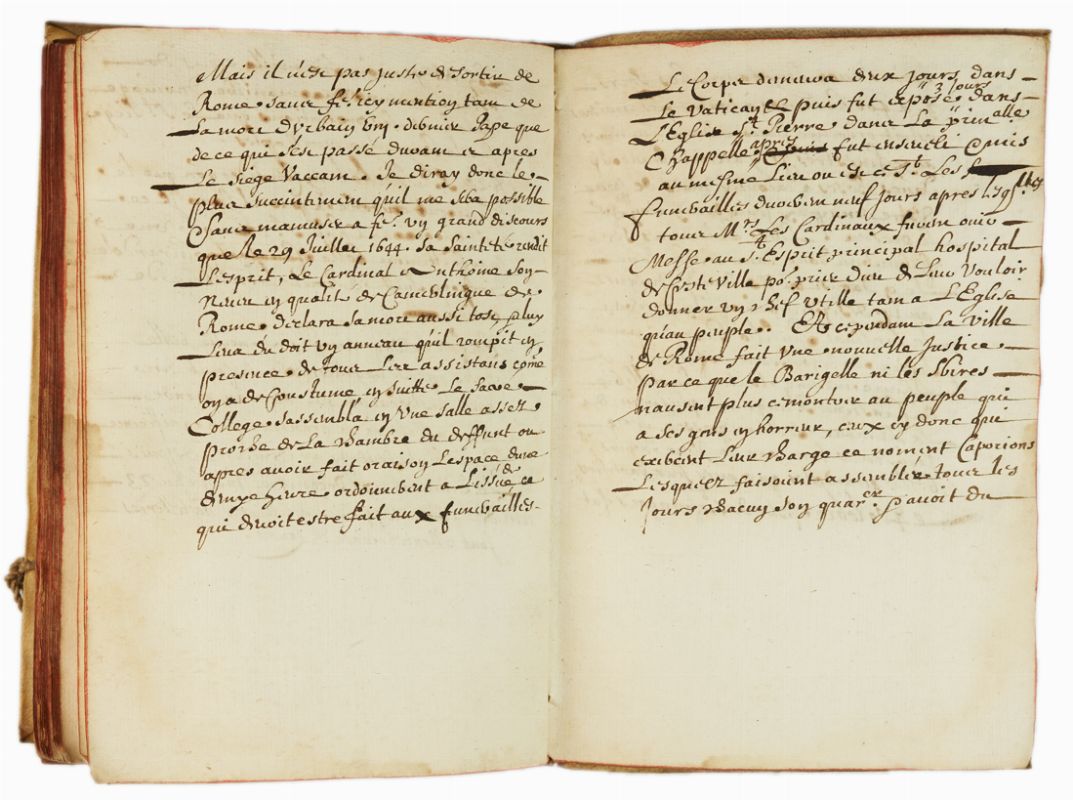 Mais il n'est pas juste de sortir de
Rome sans fe. icy mention tant de
La mort d'Vrbain 8me. dernier Pape que
de ce qui s'est passé durant et apres
Le siege Vaccant. Je diray donc le
plus succintement qu'il me sera possible
Sans m'amuser a fe. vn grand discours
que le 29 Juillet 1644. sa Sainteté rendit
L'esprit, Le Cardinal Anthoine son
Neueu en qualité de Camerlingue de
Rome declara sa mort aussi tost, puis
Leua du doit vn anneau qu'il rompit en
presence de tous Les assistans come
on a de Coustume en suitte Le Sacré
College s'assembla en vne salle assez
proche de La chambre du deffunt ou
apres auoir fait oraison L'espace d'vne
demye heure ordonnerent a L'issüe de ce
qui deuoit estre fait aux funerailles.
Le Corps demeura deux jours dans
Le Vatican et puis fut exposé 3 jours dans
L'Eglise St. Pierre dans La prin.alle
Chappelle apres fut enseueli et mis
au mesme Lieu ou est ce St. Les
funerailles durerent neuf jours apres
tous Mrs. Les Cardinaux furent ouir
Messe au St. Esprit principal hospital
de ceste Ville po. prier dieu de Leur vouloir
donner vn chef vtille tant a L'Eglise
qu'au peuple. Et cependant La Ville
de Rome fait vne nouuelle Justice
par ce que le Barigelle ni les Sbires
n'ausent plus se montrer au peuple qui
a ses gens en horreur, ceux cy donc qui
exercent Leur charge se noment Caporions
Lesquelz faisoint assembler tous les
jours chacun son quar.er s'auoit du